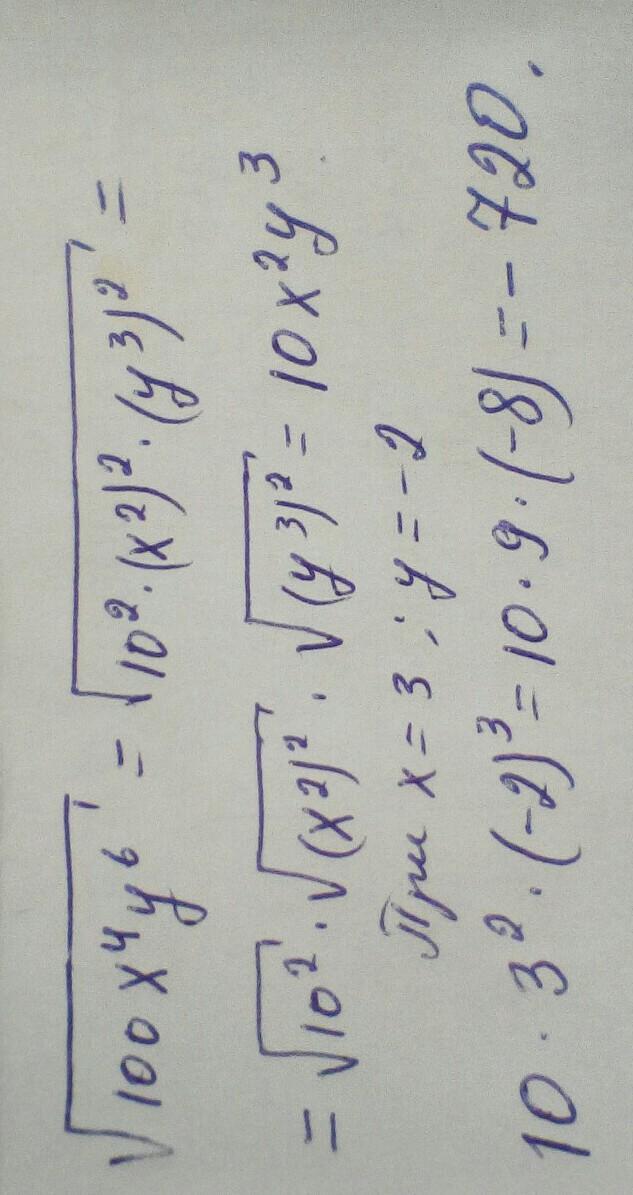 √100x⁴y⁶ = √10²·(x²)²·(y³)² =
= √10² · √(x²)² · √(y³)² = 10x²y³
При x = 3 ; y = -2
10 · 3² · (-2)³ = 10 · 9 · (-8) = -720.